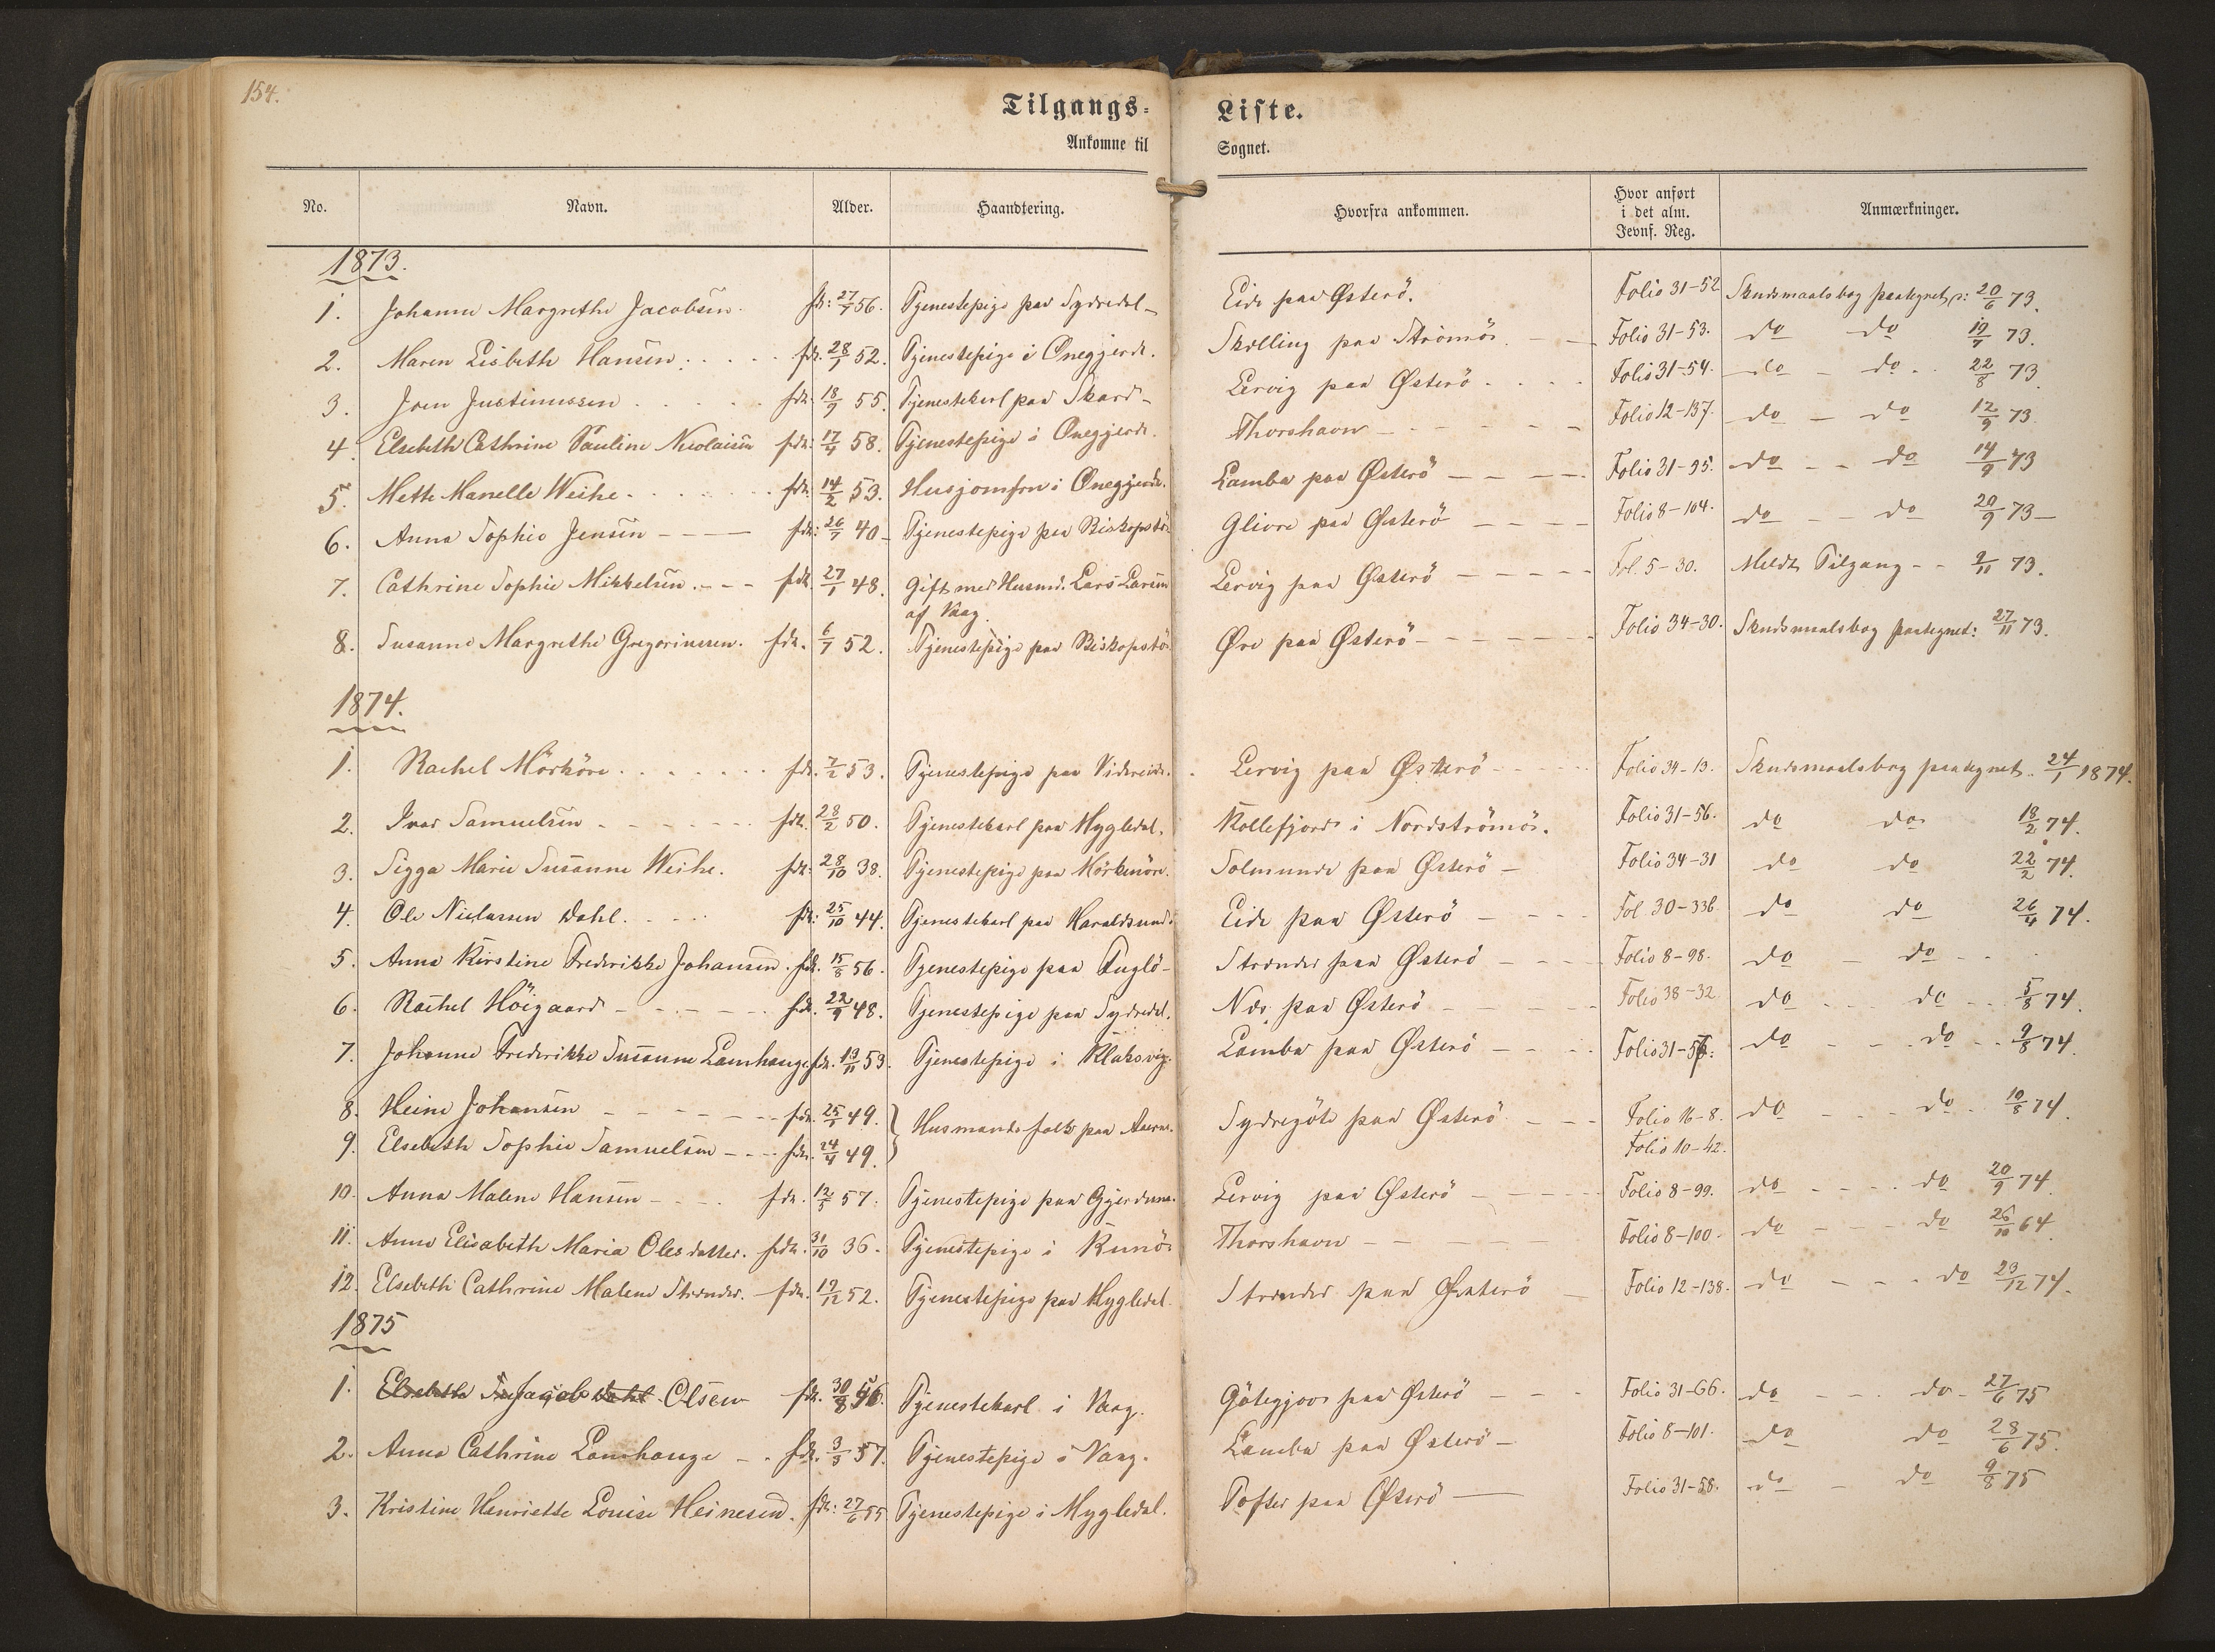 154.
Tilgangs- Liste.
Ankomne til Sognet.
No. Navn. Alder. Haandtering. Hvorfra ankommen. Hvor anført i det alm. Jevnf. Reg. Anmærkninger.
1873.
1. Johanne Margrethe Jacobsen. fdt: 27/7 56. Tjenestepige paa Sydredal - Eide paa Østerö. Folio 31-52 Skudsmaalsbog paategnet: 20/6 73.
2. Maren Lisbeth Hansen. fdt. 28/1 52. Tjenestepige i Onegjerde. Skælling paa Strömö. Folio 31-53. do do 19/7 73.
3. Joen Justinussen fdt. 18/9 55. Tjenestekarl paa Skard - Lervig paa Østerö Folio 31-54. do - do. 22/8 73.
4. Elsebeth Cathrine Pauline Nicolaisen fdt. 17/4 58. Tjenestepige i Onegjerde. Thorshavn Folio 12-137. do - do 12/9 73.
5. Mette Manelle Weihe. fdt. 14/2 53. Husjomfru i Onegjerde. Lamba paa Østerö Folio 31-95. do - do 14/9 73
6. Anna Sophie Jensen fdt: 26/7 40 - Tjenestepige paa Biskopstö. Glivre paa Østerö Folio 8-104. do - do 20/9 73 -
7. Cathrine Sophie Mikkelsen. fdt 27/1 48. Gift med Husmd. Lars Larsen af Vaag. Lervig paa Østerö Fol. 5-30. Meldt Tilgang - 9/11 73.
8. Susanne Margrethe Gregoriussen. fdt. 6/7 52. Tjenestepige paa Biskopstö. Øre paa Østerö Folio 34-30. Skudsmaalsbog paategnet: 27/11 73.
1874.
1. Rachel Mörköre. fdt. 7/2 53. Tjenestepige paa Videreide. Lervig paa Østerö Folio 34-13. Skudsmaalsbog paategnet. 24/1 1874.
2. Ivar Samuelsen fdt. 28/2 50. Tjenestekarl paa Mygledal. Kollefjord i Nordströmö. Folio 31-56. do do 18/2 74.
3. Sigga Marie Susanne Weihe. fdt: 28/10 38. Tjenestepige paa Mörkenöre. Solmunde paa Østerö - Folio 34-31 do do 22/2 74.
4. Ole Nielassen Dahl. fdt: 25/10 44. Tjenestekarl paa Haraldssund. Eide paa Østerö Fol. 30-336 do do 26/4 74.
5. Anna Kirstine Frederikke Johansen. fdt. 15/8 56. Tjenestepige paa Fuglö - Strænder paa Østerö Folio 8-98. do - do
6. Rachel Höigaard fdt. 22/9 48. Tjenestepige paa Sydredal. Næs paa Østerö Folio 38-32 do do 5/8 74.
7. Johanne Frederikke Susanne Lamhauge fdt. 13/11 53. Tjenestepige i Klaksvig. Lamba paa Østerö Folio 31-57: do - do 9/8 74.
8. Heine Johansen fdt. 25/1 49. Husmandsfolk paa Aaerne. Sydregöte paa Østerö Folio 16-8. do do. 10/8 74.
9. Elsebeth Sophie Samuelsen fdt. 24/4 49. Folio 10-42.
10. Anna Malene Hansen fdt. 12/5 57. Tjenestepige paa Gjerdumm. Lervig paa Østerö Folio 8-99. do do 20/9 74.
11. Anna Elisabeth Maria Olesdatter. fdt. 31/10 36. Tjenestepige i Kunö. Thorshavn Folio 8-100. do do 26/10 64.
12. Elsebeth Cathrine Malene Strænder. fdt. 19/12 52. Tjenestepige paa Mygledal. Strænder paa Østerö Folio 12-138. do do 23/12 74.
1875
1. Elsebeth Jacob Dahl Olsen fdt. 30/8 56. Tjenestekarl i Vaag. Götegjov paa Østerö Folio 31-66. do do 27/6 75
2. Anna Cathrine Lamhauge fdt. 3/3 57. Tjenestepige i Vaag. Lamba paa Østerö - Folio 8-101. do do 28/6 75.
3. Kristine Henriette Louise Heinesen. fdt: 27/6 55 Tjenestepige i Mygledal. Tofter paa Østerö Folio 31-58. do - do 9/8 75